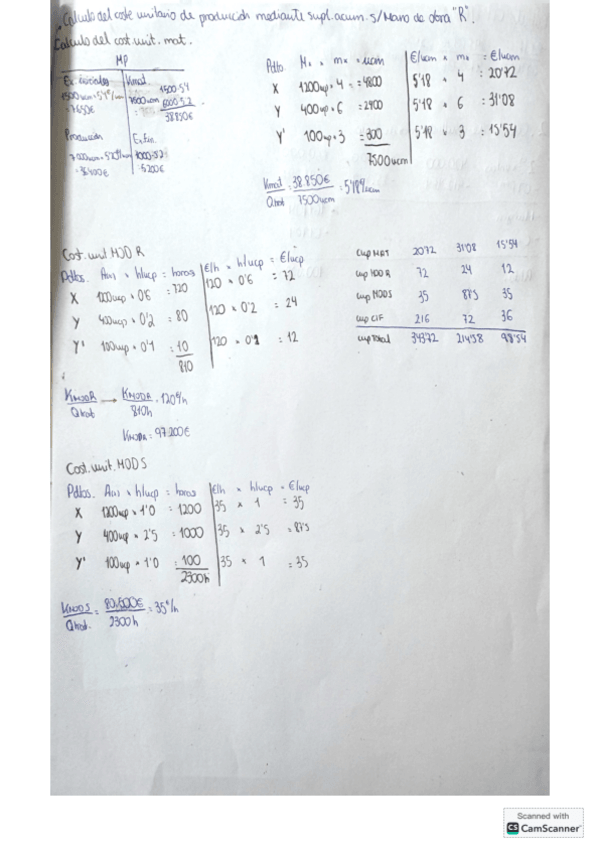 Calculo del coste unitario de producción mediante supl. acum. s/Mano de obra "R".
Calculo del cost. unit. mat.
MP
Ex. iniciales Kmat
1500ucm × 5'4€/ucm 7500ucm 1500·5'4
6000·5'2
38850€
Producción Ex.Fin.
1000·5'2
5200€
Pdto. Nx × mx = ucm €/ucm × mx = €/ucm
X 1200up × 4 = 4800 5'18 × 4 = 20'72
Y 400up × 6 = 2400 5'18 × 6 = 31'08
Y' 100up × 3 = 300 5'18 × 3 = 15'54
7500ucm
Kmat = 38.850€ = 5'18€/ucm
Qtrat 7500ucm
Cost. unit MOD R
Pdtos. Aui × h/ucp = horas €/h × h/ucp = €/ucp
X 1200up × 0'6 = 720 120 × 0'6 = 72
Y 400up × 0'2 = 80 120 × 0'2 = 24
Y' 100up × 0'1 = 10 120 × 0'1 = 12
810
cup MAT 20'72 31'08 15'54
cup MOD R 72 24 12
cup MODS 35 87'5 35
cup CIF 216 72 36
cup Total 343'72 214'58 98'54
KMODR → KMODR = 120€/h
Qtrat 810h
KMODR = 97.200€
Cost. unit. MOD S
Pdtos. Aui × h/ucp = horas €/h × h/ucp = €/ucp
X 1200up × 1'0 = 1200 35 × 1 = 35
Y 400up × 2'5 = 1000 35 × 2'5 = 87'5
Y' 100up × 1'0 = 100 35 × 1 = 35
2300h
KMODS = 80.500€ = 35€/h
Qtrat. 2300h
Scanned with
CS CamScanner